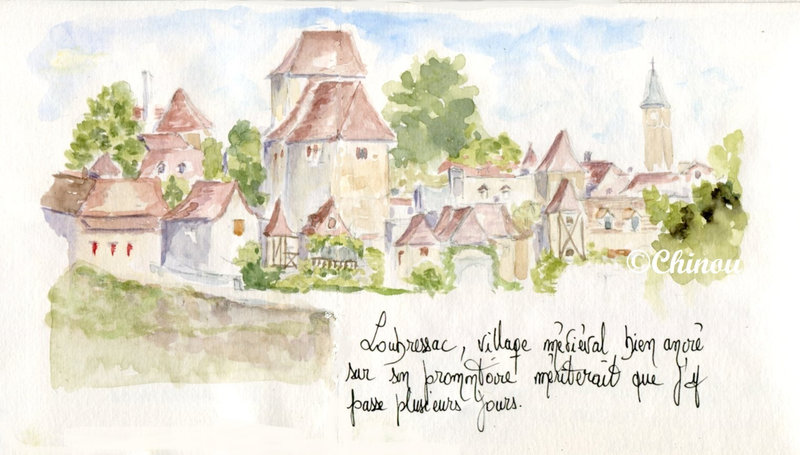 ©Chinou
Loubressac, village médiéval bien ancré
sur son promontoire mériterait que j'y
passe plusieurs jours.